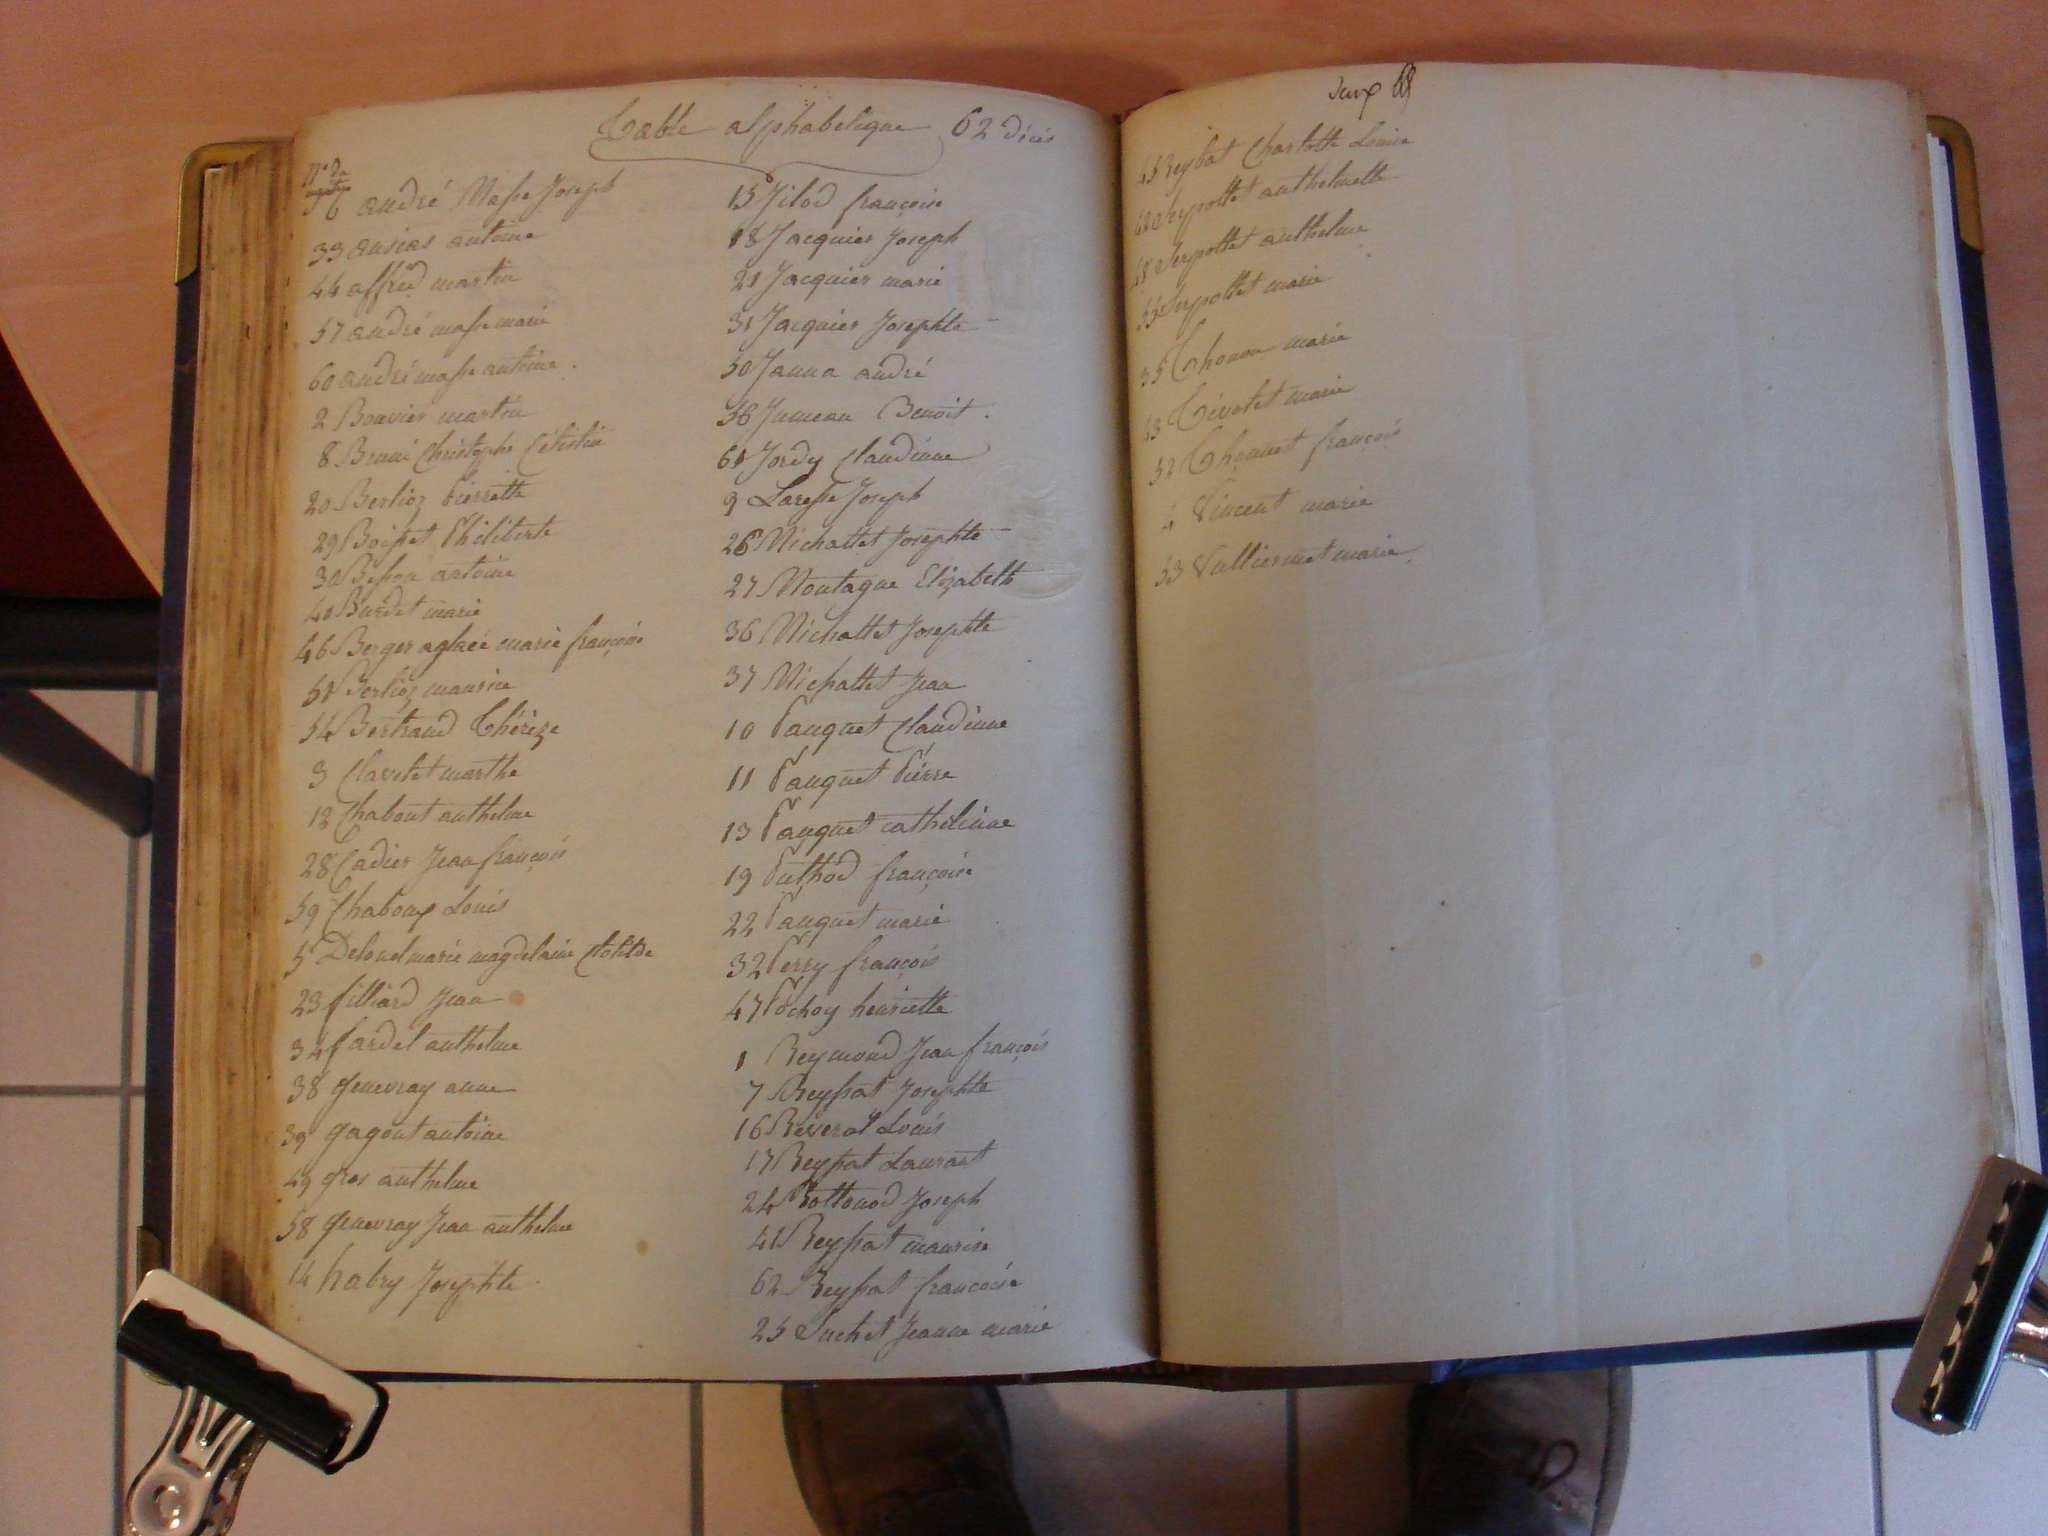 Table alphabetique 62 décès
N° du
6 andré Masse Joseph
33 ansias antoine
44 affred martin
57 andré masse marie
60 andré masse antoine
2 Bouvier martin
8 Brunie Christophe Célestin
20 Berlioz Pierrette
29 Boisset Philiberte
30 Besson antoine
40 Burdet marie
46 Berger aglaée marie françoise
51 Berlioz maurice
54 Bertrand Thérèze
3 Clavetet marthe
12 Chabout anthelme
28 Cadier Jean françois
59 Chaboux Louis
5 Delonel marie magdelaine Clotilde
23 filliard Jean
34 fardel anthelme
38 genevray anne
39 gagout antoine
49 gros anthelme
58 genevray Jean anthelme
14 habry Josephte
15 Jilod françoise
18 Jacquier Joseph
21 Jacquier marie
31 Jacquier Josephte
50 Janna andré
56 Jumeau Benoit
61 Jordy Claudinne
9 Laresse Joseph
26 Michallet Josephte
27 Montagne Elizabeth
36 Michallet Josephte
37 Michallet Jean
10 Pauquet Claudinne
11 Pauquet Pierre
13 Pauquet cathelinne
19 Puthod françoise
22 Pauquet marie
32 Perry françois
47 Pochoy henriette
1 Reymond Jean françois
7 Reyssat Josephte
16 Reverat Louis
17 Reyssat Laurant
24 Rottonod Joseph
41 Reyssat maurise
62 Reyssat francoise
25 Suchet Jeanne marie
deux
45 Reyssat Charlotte Louise
42 Serpollet anthelmette
48 Serpollet anthelme
55 Serpollet marie
35 Thonon marie
43 Tévolet marie
52 Thonnet françois
4 Vincent marie
53 Vulliermet marie